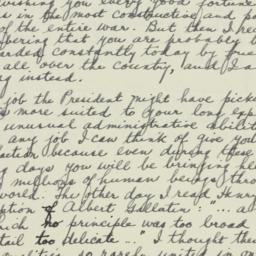 wishing you every good fortune
is in the most constructive and po
of the entire war. But then I rec
bering that you are probably b
arded constantly today by frie
all over the country, and I a
g instead.
job the President might have pick
s more suited to your long exp
unusual administrative abilit
any job I can think of give you
faction because even during these
ng days you will be bringing
millions of human beings thro
world. The other day I read Henry
ption of Albert Gallatin: "... a
hich no principle was too broad
tail too delicate ..." I thought the
so rarely united in on